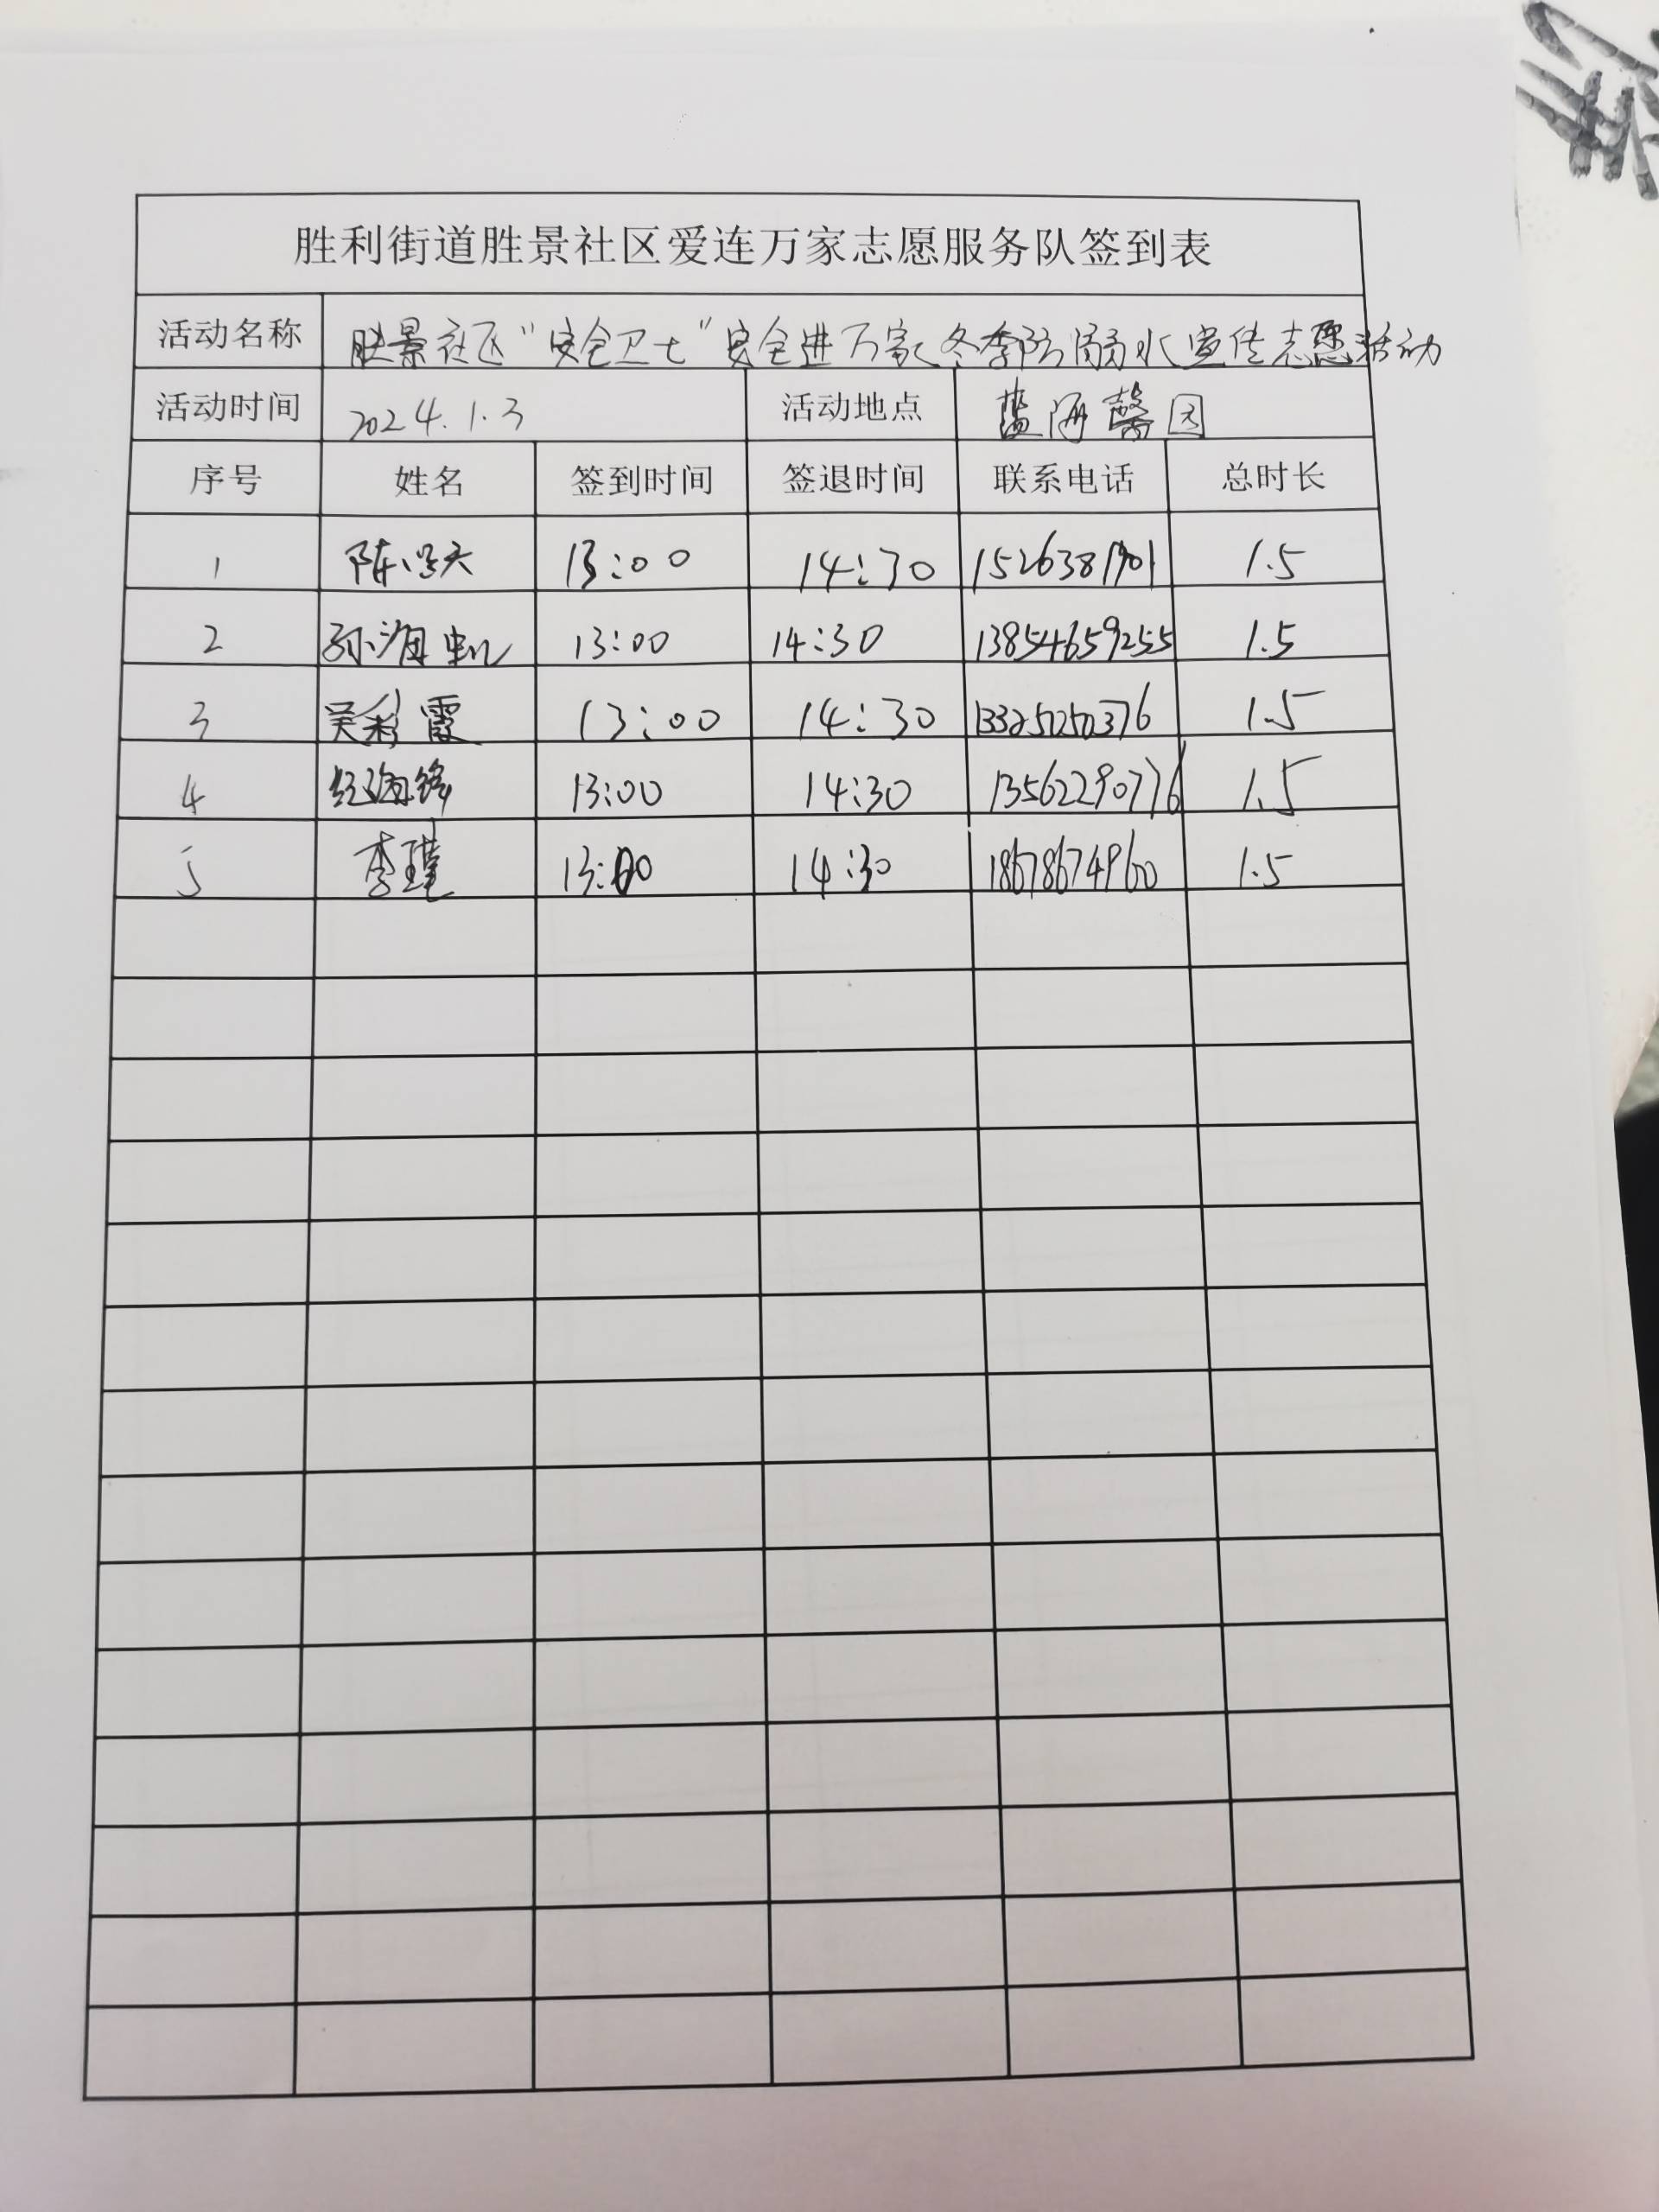 胜利街道胜景社区爱连万家志愿服务队签到表
活动名称 胜景社区“安全卫士”安全进万家冬季防溺水宣传志愿活动
活动时间 2024.1.3 活动地点 蓝海馨园
序号 姓名 签到时间 签退时间 联系电话 总时长
1 陈 13:00 14:30 15263819701 1.5
2 孙海虹 13:00 14:30 13854659255 1.5
3 吴彩霞 13:00 14:30 13325050376 1.5
4 纪海锋 13:00 14:30 13562290776 1.5
5 李瑾 13:00 14:30 18678674960 1.5